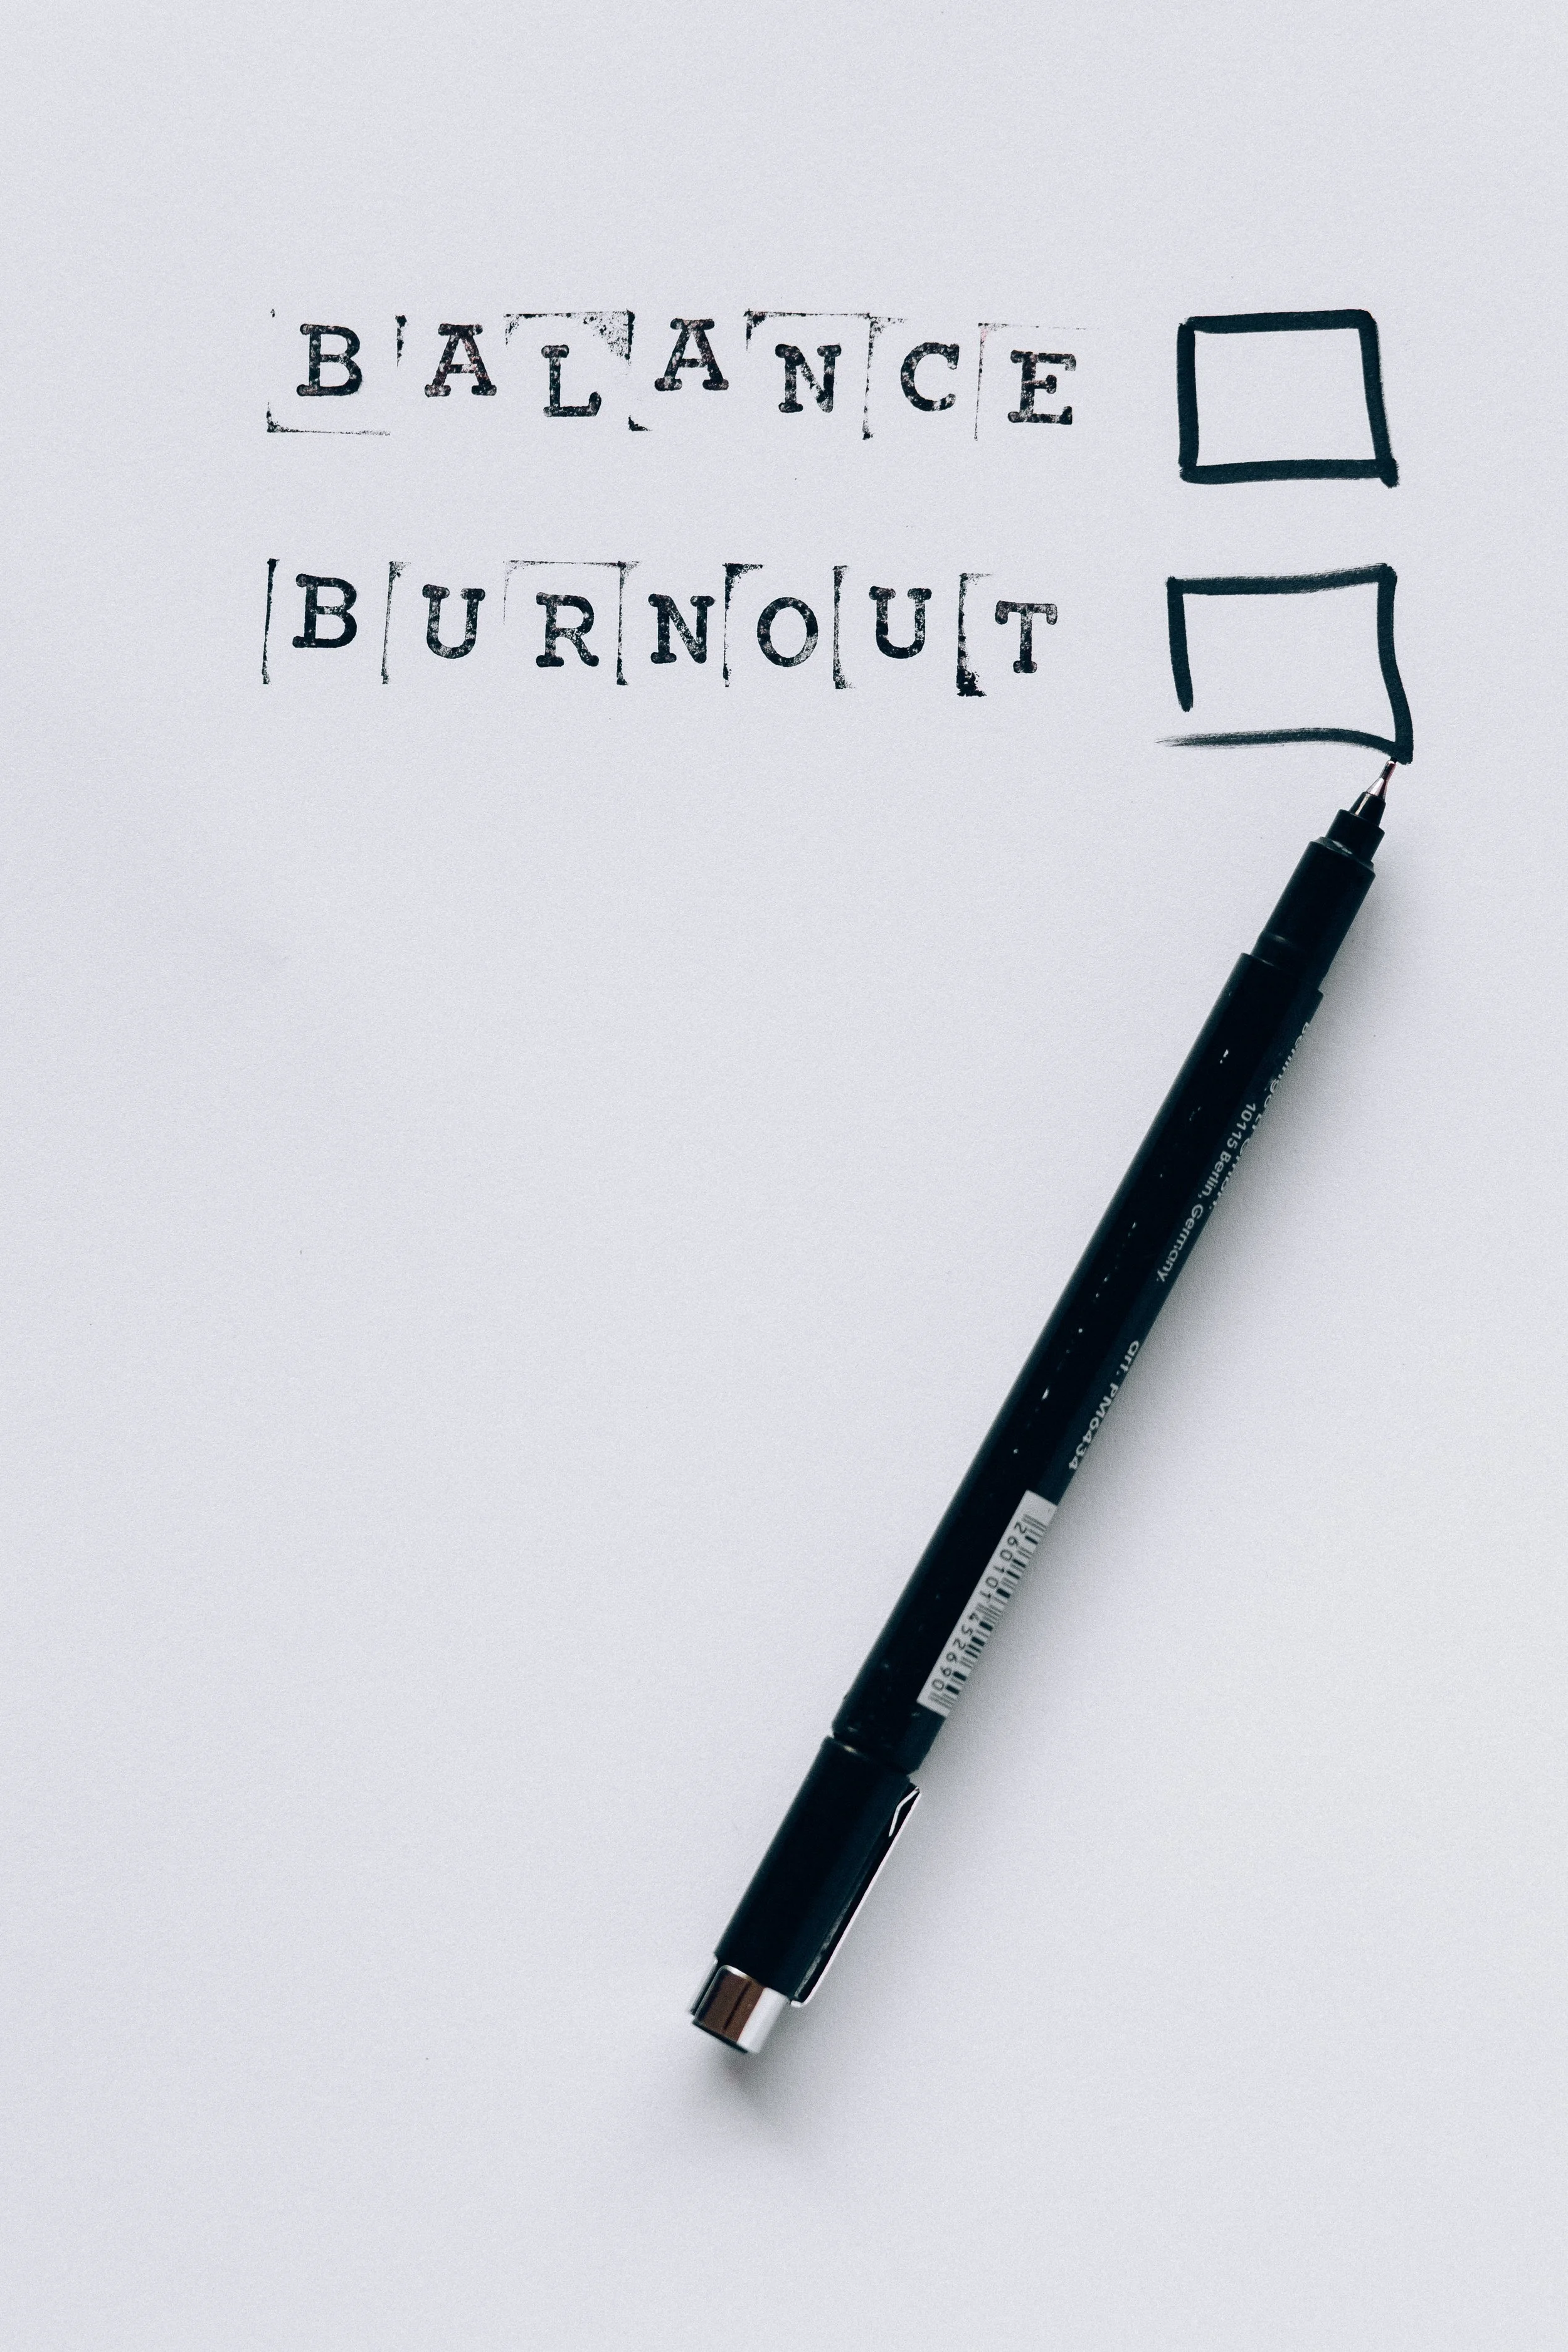 BALANCE
BURNOUT
10115 Berlin, Germany.
art. PM6434
2601014526901